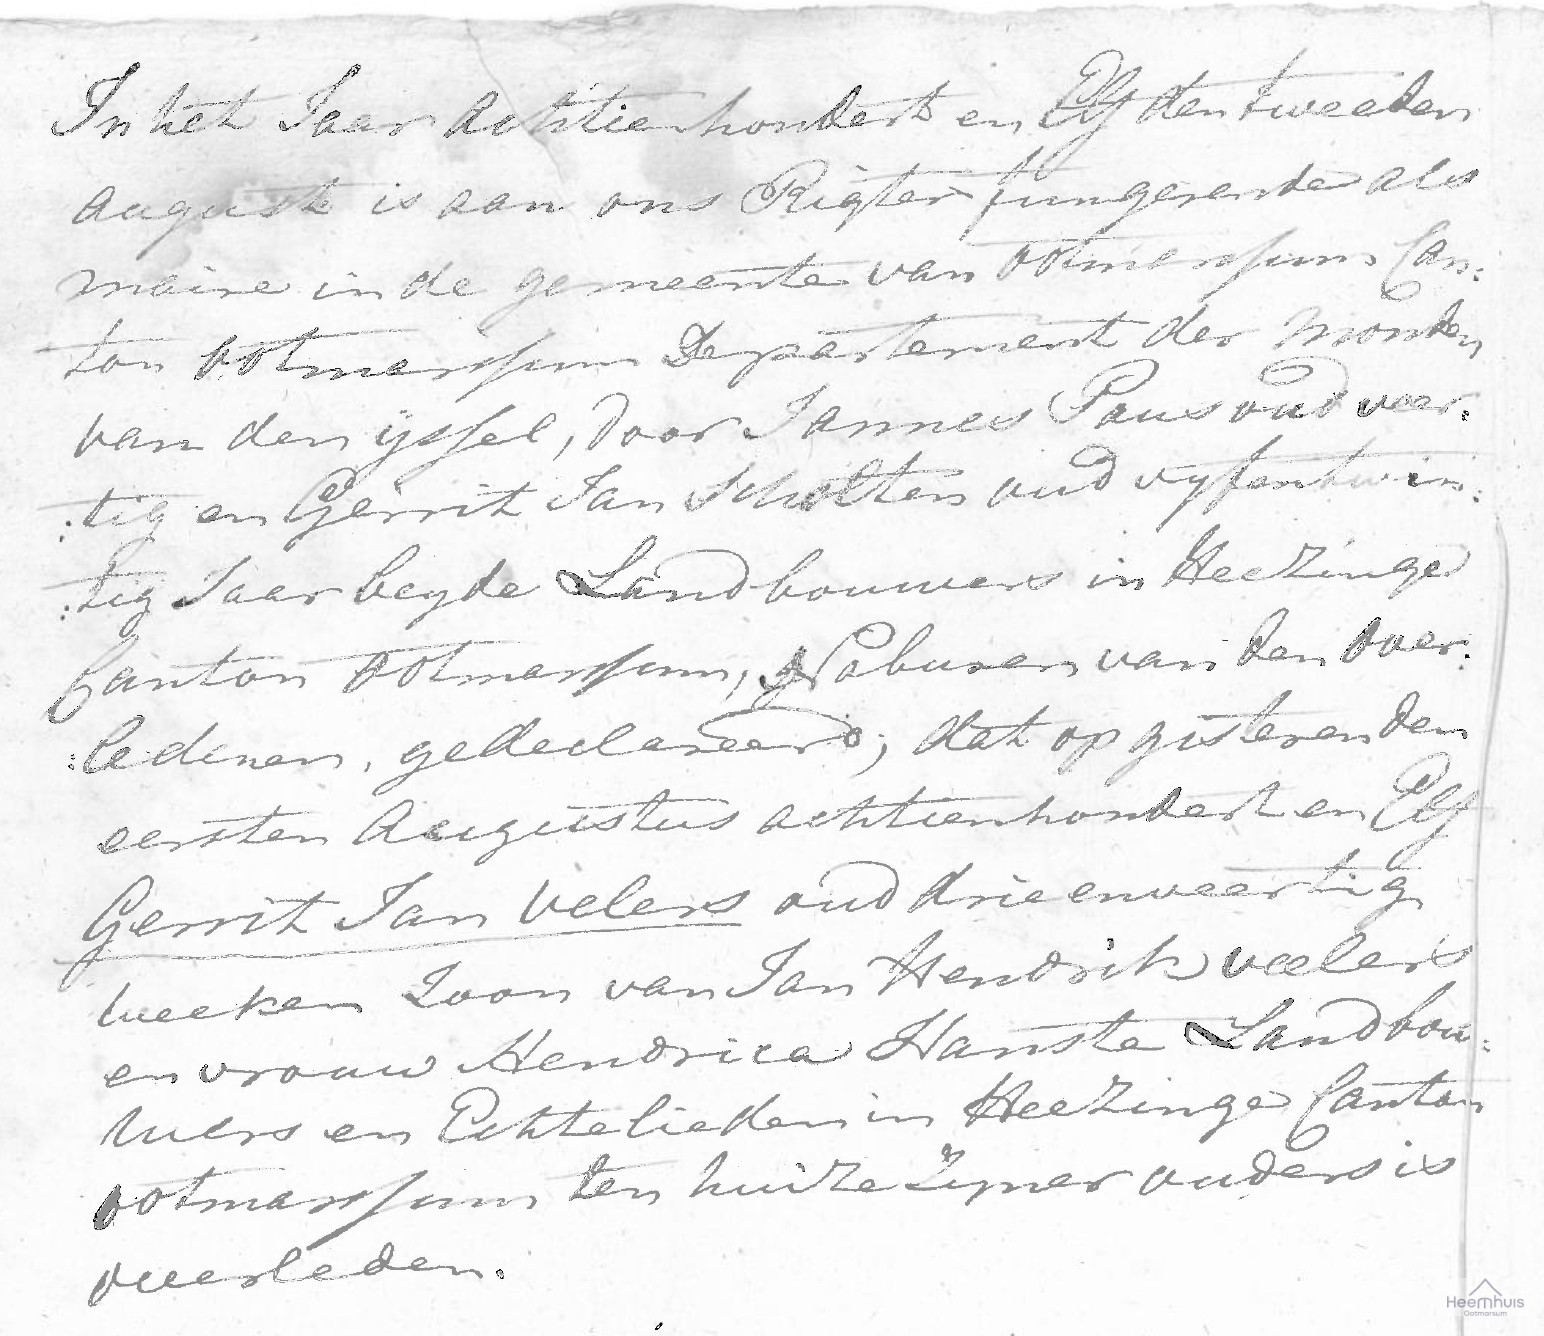 In het Jaar Achtienhondert en Elf den tweeden
august is aan ons Rigter fungerende als
maire in de gemeente van ootmarssum Can:
ton ootmarssum Departement der Monden
van den ijssel, door Jannes Paus oud veer:
:tig en Gerrit Jan Scholten oud vyfentwin:
:tig Jaar beyde Landbouwers in Heezinge
Canton ootmarssum, Naburen van den over:
:ledenen, gedeclareerd; dat op gisteren den
eersten Augustus achtienhondert en Elf
Gerrit Jan Velers oud drieenveertig
weeken Zoon van Jan Hendrik veelers
en vrouw Hendrica Hanste Landbou:
wers en Echtelieden in Heezinge Canton
ootmarssum ten huize Zyner ouders is
overleden.
Heemhuis
Ootmarsum